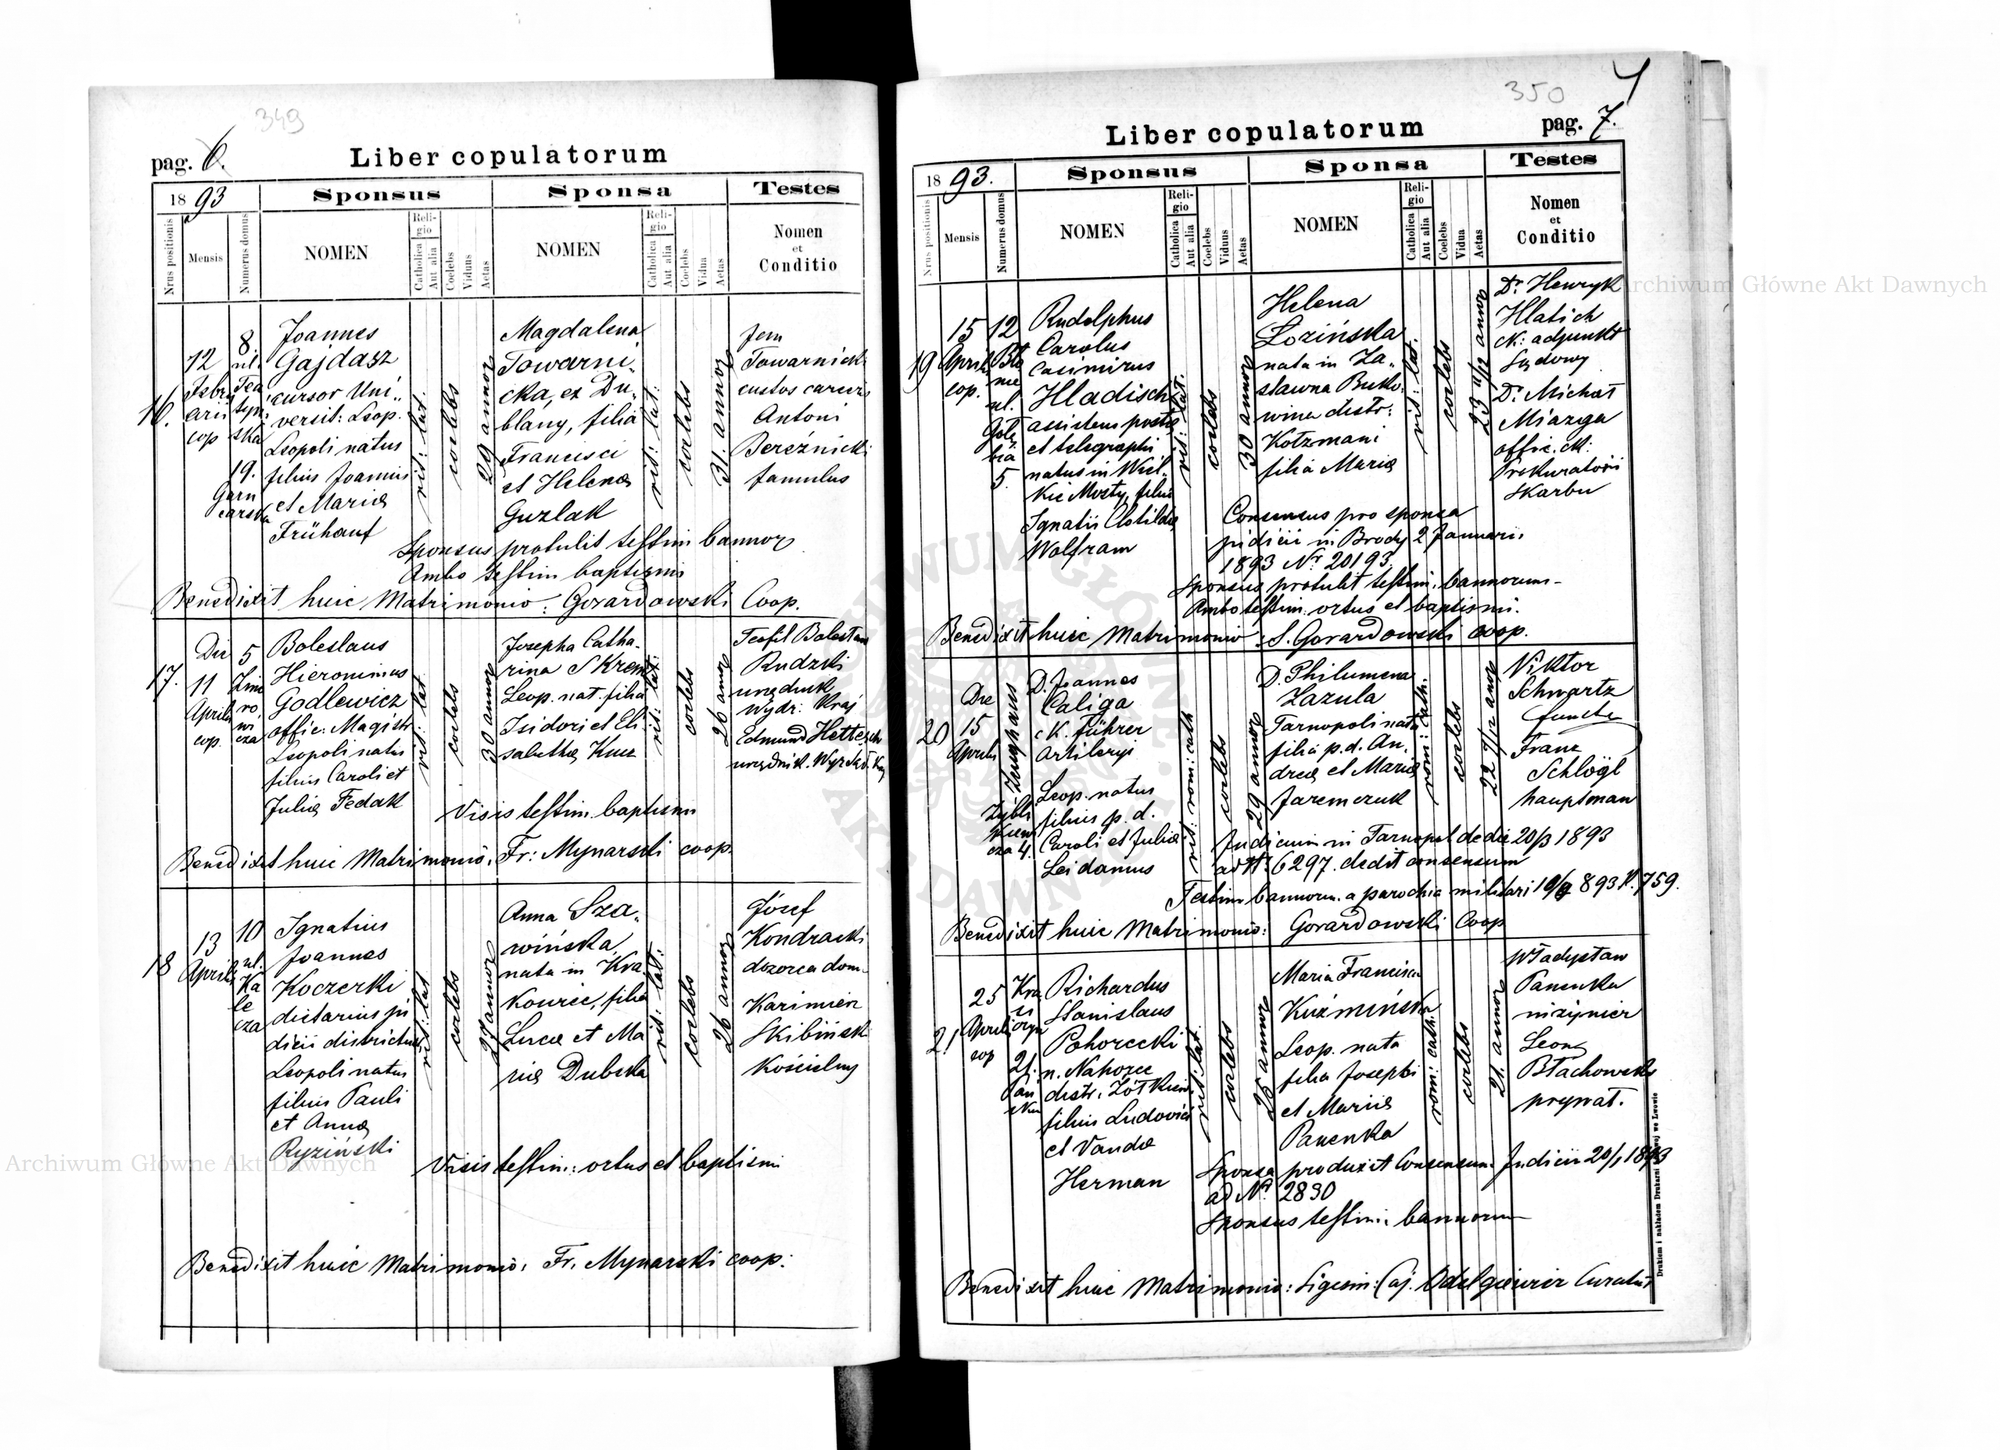 349
pag. 6.
Liber copulatorum
1893
Sponsus
Sponsa
Testes
Nrus positionis
Mensis
Numerus domus
NOMEN
Religio
Catholica
Aut alia
Coelebs
Viduus
Aetas
NOMEN
Religio
Catholica
Aut alia
Coelebs
Vidua
Aetas
Nomen
et
Conditio
16.
12
Febru
arii
cop
8.
ul.
Tea
tyń
ska
19.
Garn
carska
Joannes
Gajdasz
cursor Uni,,
versit: Leop.
Leopoli natus
filius Joannis
et Mariæ
Frühauf
rit: lat.
coelebs
29 annor
Magdalena
Towarni,,
cka, ex Du,,
blany, filia
Francisci
et Helenæ
Guzlak
rit: lat:
coelebs
31. annor
Towarnicki
custos carceris
Antoni
Bereźnicki
famulus
Sponsus protulit testim bannor
Ambo testim baptismi
Benedixit huic Matrimonio: Gorardowski Coop.
17.
Die
11
Aprilis
cop.
5
Zimo
ro,
wi
cza
Boleslaus
Hieronimus
Godlewicz
offic: Magistr
Leopoli natus
filius Caroli et
Juliæ Fedak
rit: lat.
coelebs
30 annor
Josepha Catha,
rina Skrem
Leop. nat. filia
Isidori et Eli
sabethæ Kuz
rit: lat:
coelebs
26 annor
Teofil Bolesław
Rudzki
urzędnik
Wydz: Kraj
Edmund
urzędnik. Wydział. Kraj
Visis testim. baptismi
Benedixit huic Matrimonio: Fr: Mynarski coop.
18
13
Aprilis
10
ul.
Ka
le
cza
Ignatius
Joannes
Koczerki
dietarius ju
dicii districtus
Leopoli natus
filius Pauli
et Annæ
Ryziński
rit: lat
coelebs
27 annor
Anna Sza,
wińska
nata in Kra
kowiec, filia
Lucæ et Ma
riæ Dubska
rit: lat:
coelebs
26 annor
Józef
Kondracki
dozorca dom.
Kazimierz
Skibiński
Kościelny
Visis testim: ortus et baptismi
Benedixit huic Matrimonio: Fr. Mynarski coop:
350
pag. 7.
Liber copulatorum
1893.
Sponsus
Sponsa
Testes
Nrus positionis
Mensis
Numerus domus
NOMEN
Religio
Catholica
Aut alia
Coelebs
Viduus
Aetas
NOMEN
Religio
Catholica
Aut alia
Coelebs
Vidua
Aetas
Nomen
et
Conditio
19
15
Aprilis
cop.
12
Bło
nie
ul.
Gołę
bia
5.
Rudolphus
Carolus
Casimirus
Hladisch
assistens postæ
et telegraphi
natus in Wiel,
kie Mosty, filius
Ignatii Clotildæ
Wolfram
rit: lat.
coelebs
30 annor
Helena
Łozińska
nata in Za,
stawna Buko,
wina distr:
Kotzmani
filia Mariæ
rit: lat.
coelebs
23 11/12 annor
Dr Henryk
Hlatich
ck: adjunkt
Sądowy
Dr Michał
Miazga
offic. ck:
Prokuratorii
Skarbu
Consensus pro sponsa
judicii in Brody 2 Januarii
1893 Nr 20193.
Sponsus protulit testim: bannorum
Ambo testim: ortus et baptismi.
Benedixit huic Matrimonio: S. Gorardowski coop.
20
Die
15
Aprilis
Zeughaus
Zybli
kiewi
cza 4.
D. Joannes
Caliga
ck. Führer
Artileryi
Leop. natus
filius p. d.
Caroli et Juliæ
Leidanius
rit: rom: cath
coelebs
29 annor
D. Philumena
Zazula
Tarnopoli nata
filia p. d. An,
dreæ et Mariæ
Jaremczuk
rom: cath.
coelebs
Viktor
Schwartz
Franz
Schlögl
hauptman
Judicium in Tarnopol de die 20/3 1893
ad Nr 6297. dedit consensum
Testim bannoru. a parochia militari 893 N. 759.
Benedixit huic Matrimonio: Gorardowski Coop
21
25
Aprilis
cop
Kra
si
czyn
21.
Pań
ska
Richardus
Stanislaus
Pohorecki
n. Nahorce
distr. Żółkiew
filius Ludovici
et Vandæ
Herman
rit: lat.
coelebs
25 annor
Maria Francisca
Kuźmińska
Leop. nata
filia Josephi
et Mariæ
Panenka
rom: cath:
coelebs
21. annor
Władysław
Panenka
inżynier
Leon
Błachowski
prywat.
Sponsa produxit Consensum Judicii 20/1 1893
ad Nr 2890
Sponsus testim: bannorum
Benedixit huic Matrimonio: Sigism: Curatus
Drukiem i nakładem Drukarni Ludowej we Lwowie
Archiwum Główne Akt Dawnych
Archiwum Główne Akt Dawnych
ARCHIWUM GŁÓWNE AKT DAWNYCH